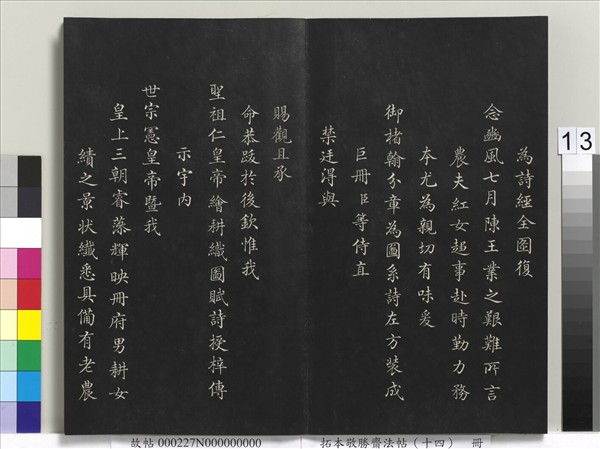 為詩經全圖復
念豳風七月陳王業之艱難所言
農夫紅女趨事赴時勤力務
本尤為親切有味爰
御楮翰分章為圖系詩左方裝成
巨冊臣等侍直
禁廷得與
賜觀且承
命恭跋於後欽惟我
聖祖仁皇帝繪耕織圖賦詩授梓傳
示宇內
世宗憲皇帝暨我
皇上三朝睿藻輝映冊府男耕女
績之景狀纖悉具備有老農
13
故帖 000227N000000000
拓本敬勝齋法帖（十四） 冊